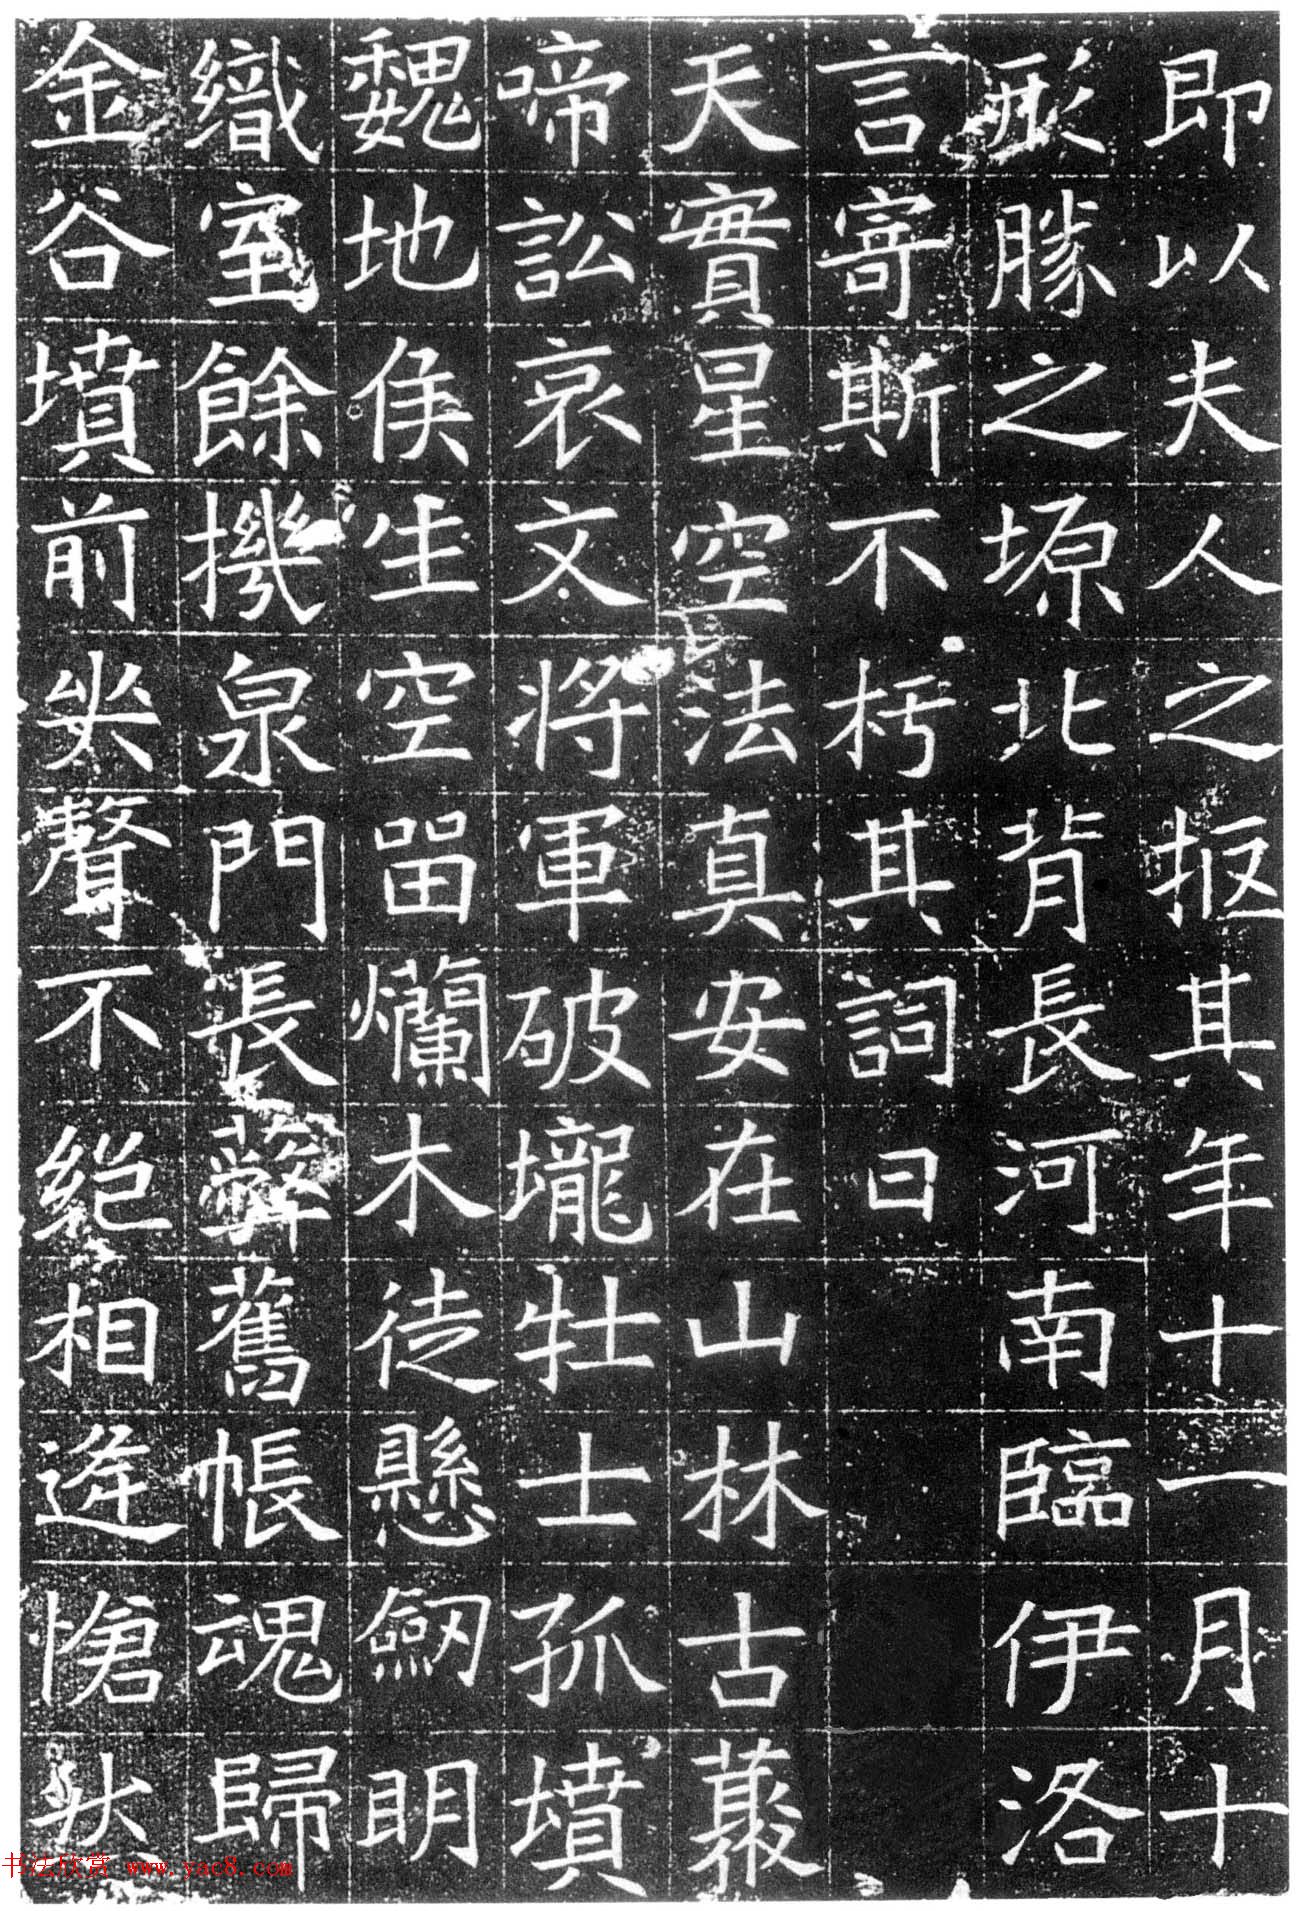 即以夫人之柩其年十一月十
形勝之塬北背長河南臨伊洛
言寄斯不朽其詞曰
天實星空法真安在山林古藂
啼訟哀文將軍破壠牡士孤墳
魏地侯生空留爛木徒懸劒明
織室餘機泉門長薜舊帳魂歸
金谷墳前哭聲不絕相逢愴
书法欣赏 www.yac8.com